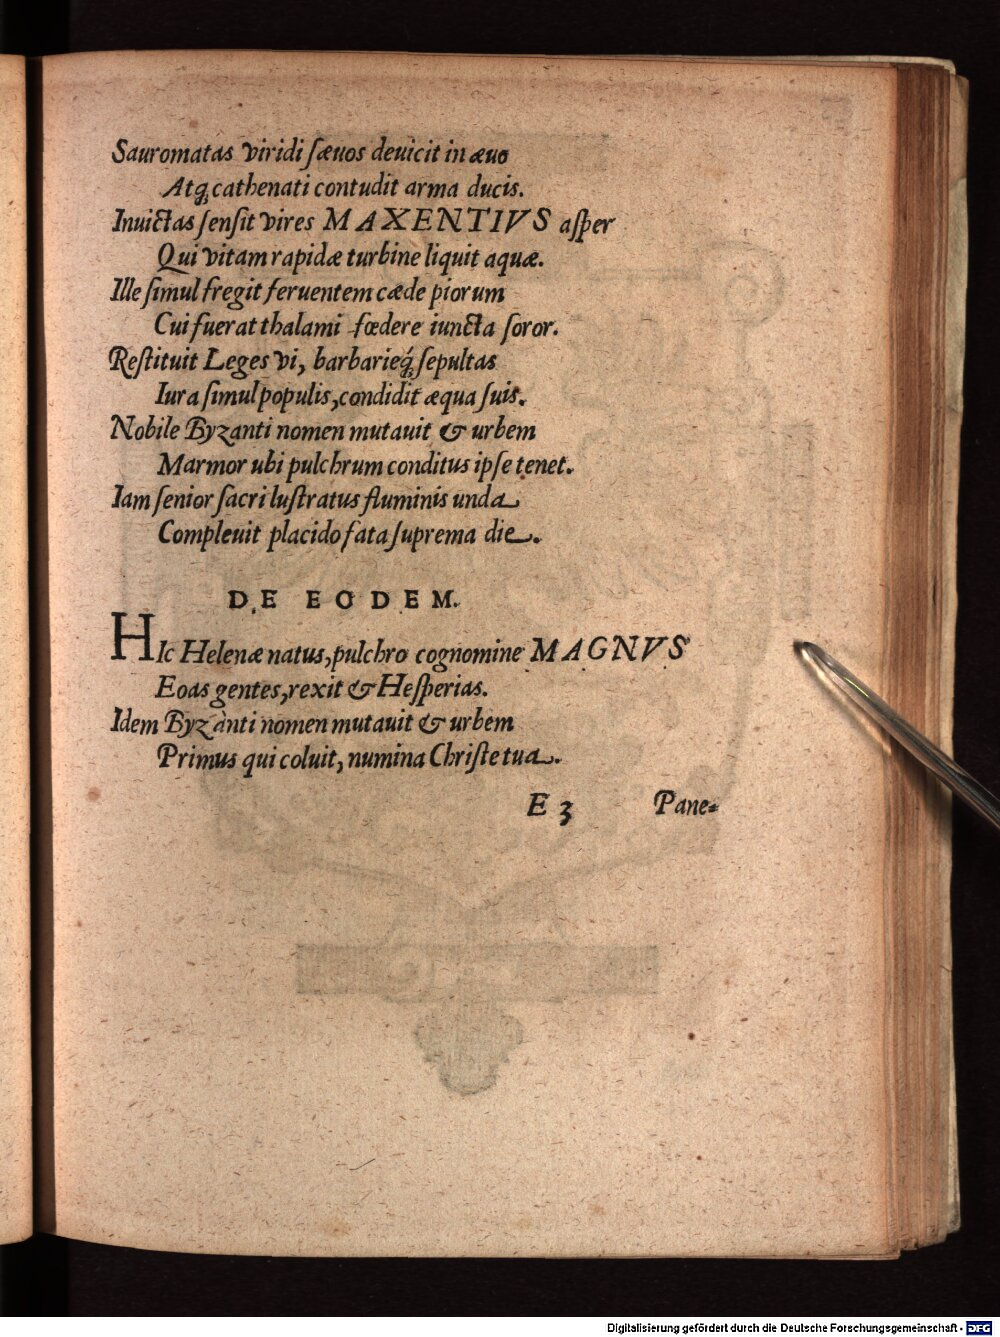 Sauromatas viridi sæuos deuicit in æuo
Atq; cathenati contudit arma ducis.
Inuictas sensit vires MAXENTIVS asper
Qui vitam rapidæ turbine liquit aquæ.
Ille simul fregit feruentem cæde piorum
Cui fuerat thalami fœdere iuncta soror.
Restituit Leges vi, barbarieq́; sepultas
Iura simul populis, condidit æqua suis.
Nobile Byzanti nomen mutauit & urbem
Marmor ubi pulchrum conditus ipse tenet.
Iam senior sacri lustratus fluminis unda
Compleuit placido fata suprema die.
DE EODEM.
HIc Helenæ natus, pulchro cognomine MAGNVS
Eoas gentes, rexit & Hesperias.
Idem Byzanti nomen mutauit & urbem
Primus qui coluit, numina Christe tua.
E 3 Pane=
Digitalisierung gefördert durch die Deutsche Forschungsgemeinschaft - DFG